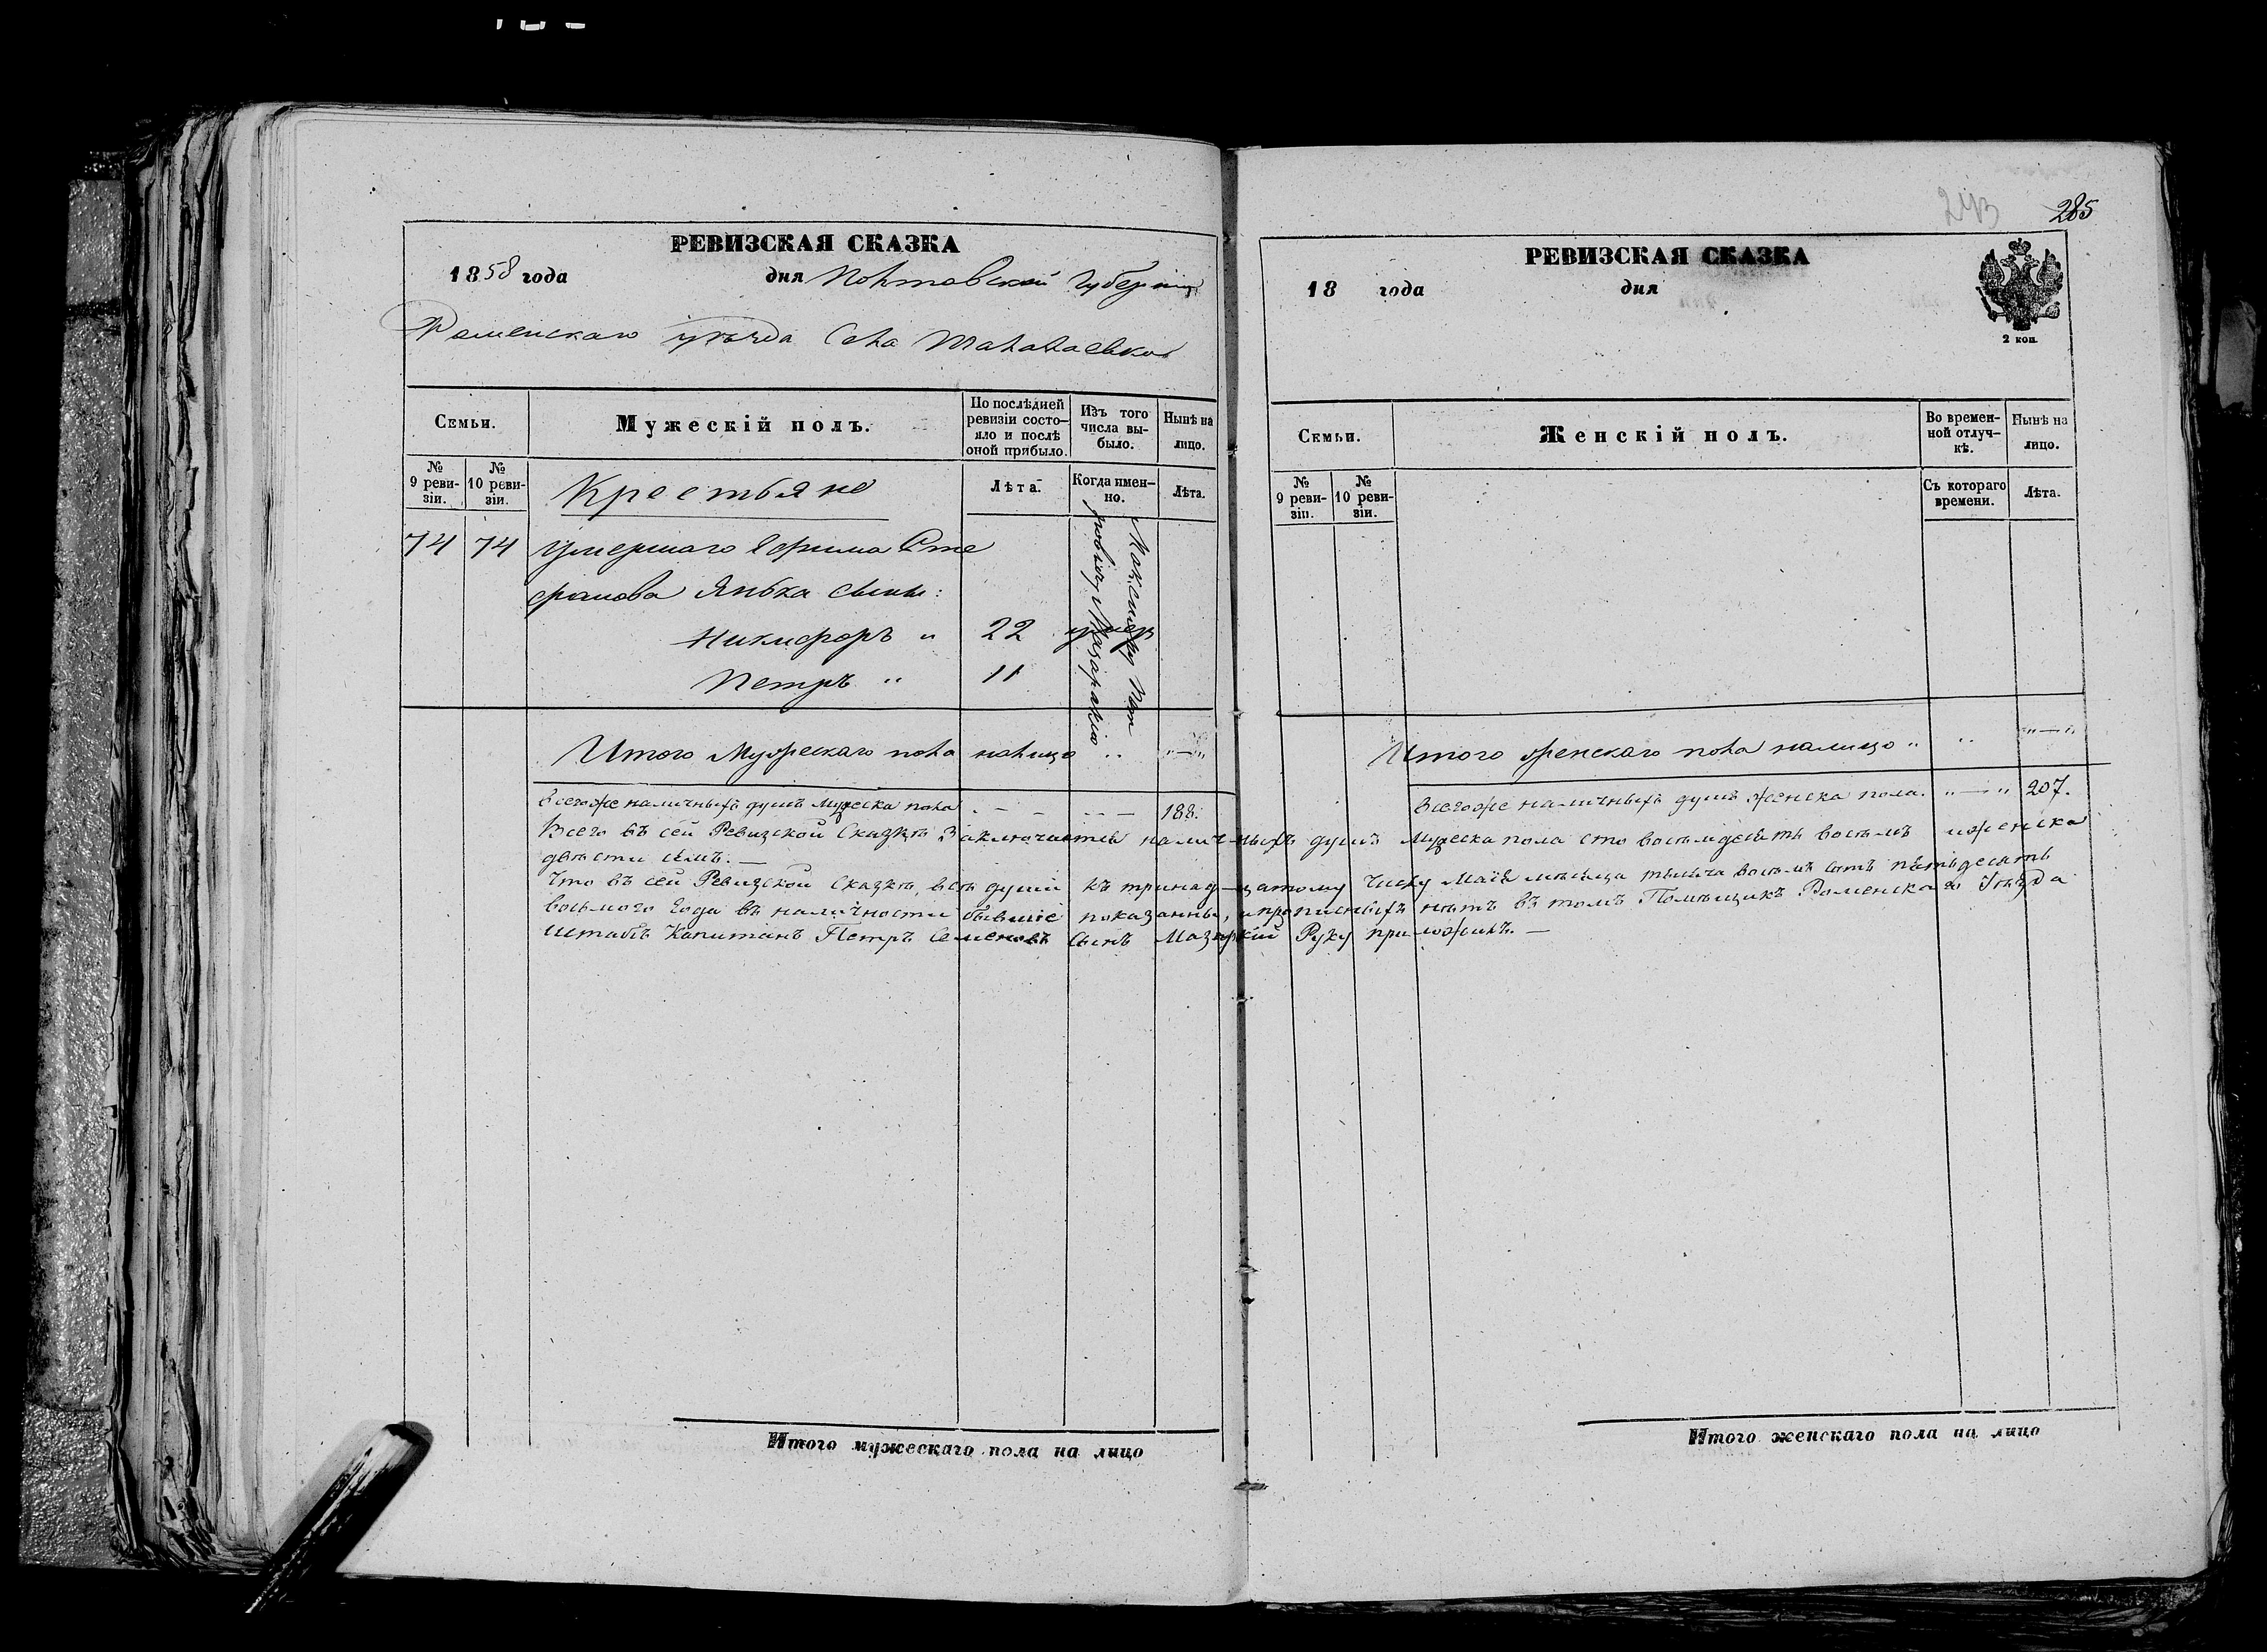 РЕВИЗСКАЯ СКАЗКА
1858 года дня Полтавской Губерніи
Роменскаго уѣзда Села Талалаевки
Семьи.
Мужескій полъ.
По послѣдней ревизіи состояло и послѣ оной прибыло.
Изъ того числа выбыло.
Нынѣ на лицо.
№ 9 ревизіи.
№ 10 ревизіи.
Крестьяне
Лѣта.
Когда именно.
Лѣта.
74 74 Умершаго Ефима Сте
фанова Янька сыны:
Никифоръ " 22 умер
Петръ " 11
Максиму Пет
ровичу Мазаракію
Итого Мужескаго пола налицо " "—"
Всегоже наличныхъ душъ Мужеска пола - - - - — 188.
РЕВИЗСКАЯ СКАЗКА
243 285
18 года дня
2 коп.
Семьи.
Женскій полъ.
Во временной отлучкѣ.
Нынѣ на лицо.
№ 9 ревизіи.
№ 10 ревизіи.
Съ котораго времени.
Лѣта.
Итого женскаго пола налицо " " "—"
Всегоже наличныхъ душъ женска пола. "—" 207.
Всего въ сей Ревизской Сказкѣ Заключается наличныхъ душъ Мужеска пола сто восемдесять восемъ иженска
двѣсти семь.—
Что въ сей Ревизской Сказкѣ, всѣ души къ тринадцатому Числу Маія мѣсяца тысяча восемъ сотъ пятьдесятъ
восьмого Года въ наличности бывшіе показанны, ипрописныхъ нѣтъ въ томъ Помѣщикъ Роменскаго Уѣзда
Штабсъ Капитанъ Петръ Семеновъ сынъ Мазаракій Руку приложилъ.—
Итого мужескаго пола на лицо
Итого женскаго пола на лицо